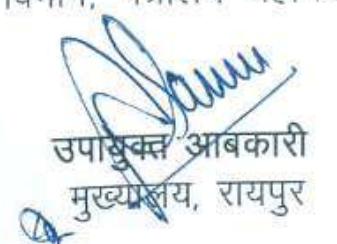 उपायुक्त आबकारी
मुख्यालय, रायपुर